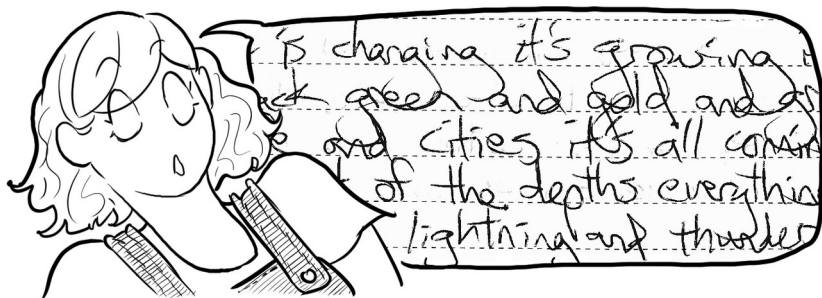 is changing it's growing
ck green and gold and gr
and cities it's all comin
t of the depths everythin
lightning and thunder